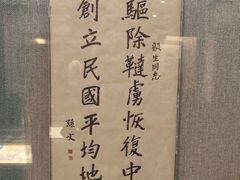 毅生同志
驅除韃虜恢復中
創立民國平均地
孫文